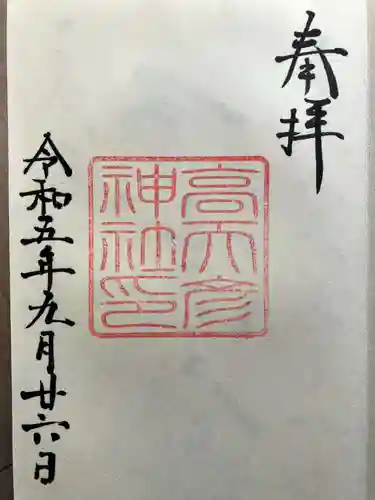 奉拝
高天彦
神社印
令和五年九月廿六日